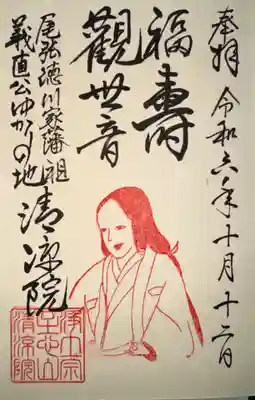 奉拝 令和六年十月十二日
福壽
觀世音
尾張徳川家藩祖
義直公ゆかりの地
清涼院
浄土宗
清涼院